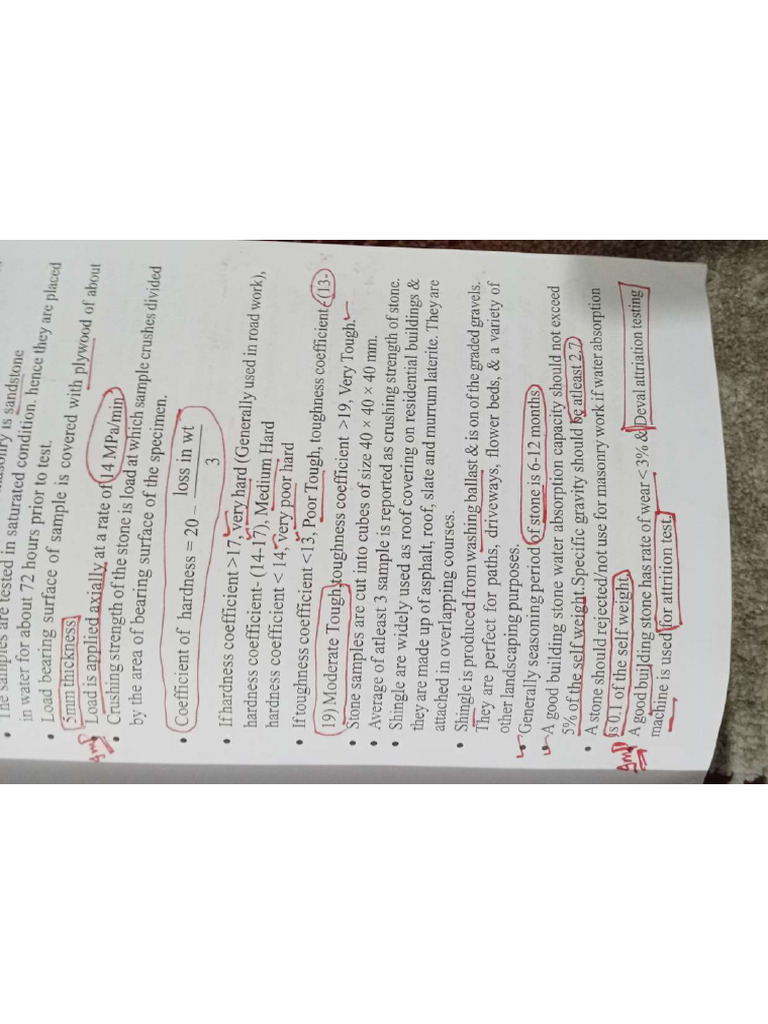 masonry is sandstone
• The samples are tested in saturated condition. hence they are placed
in water for about 72 hours prior to test.
• Load bearing surface of sample is covered with plywood of about
5mm thickness
• Load is applied axially at a rate of 14 MPa/min
Imp
• Crushing strength of the stone is load at which sample crushes divided
by the area of bearing surface of the specimen.
• Coefficient of hardness = 20 - loss in wt
3
• If hardness coefficient >17, very hard (Generally used in road work),
hardness coefficient- (14-17), Medium Hard
hardness coefficient < 14, very poor hard
• If toughness coefficient <13, Poor Tough, toughness coefficient (13-
19) Moderate Tough, toughness coefficient >19, Very Tough.
• Stone samples are cut into cubes of size 40 × 40 × 40 mm.
• Average of atleast 3 sample is reported as crushing strength of stone.
• Shingle are widely used as roof covering on residential buildings &
they are made up of asphalt, roof, slate and murrum laterite. They are
attached in overlapping courses.
• Shingle is produced from washing ballast & is on of the graded gravels.
They are perfect for paths, driveways, flower beds, & a variety of
other landscaping purposes.
• Generally seasoning period of stone is 6-12 months
• A good building stone water absorption capacity should not exceed
5% of the self weight. Specific gravity should be atleast 2.7
• A stone should rejected/not use for masonry work if water absorption
is 0.1 of the self weight.
Imp
A good building stone has rate of wear < 3% & Deval attriation testing
machine is used for attrition test.